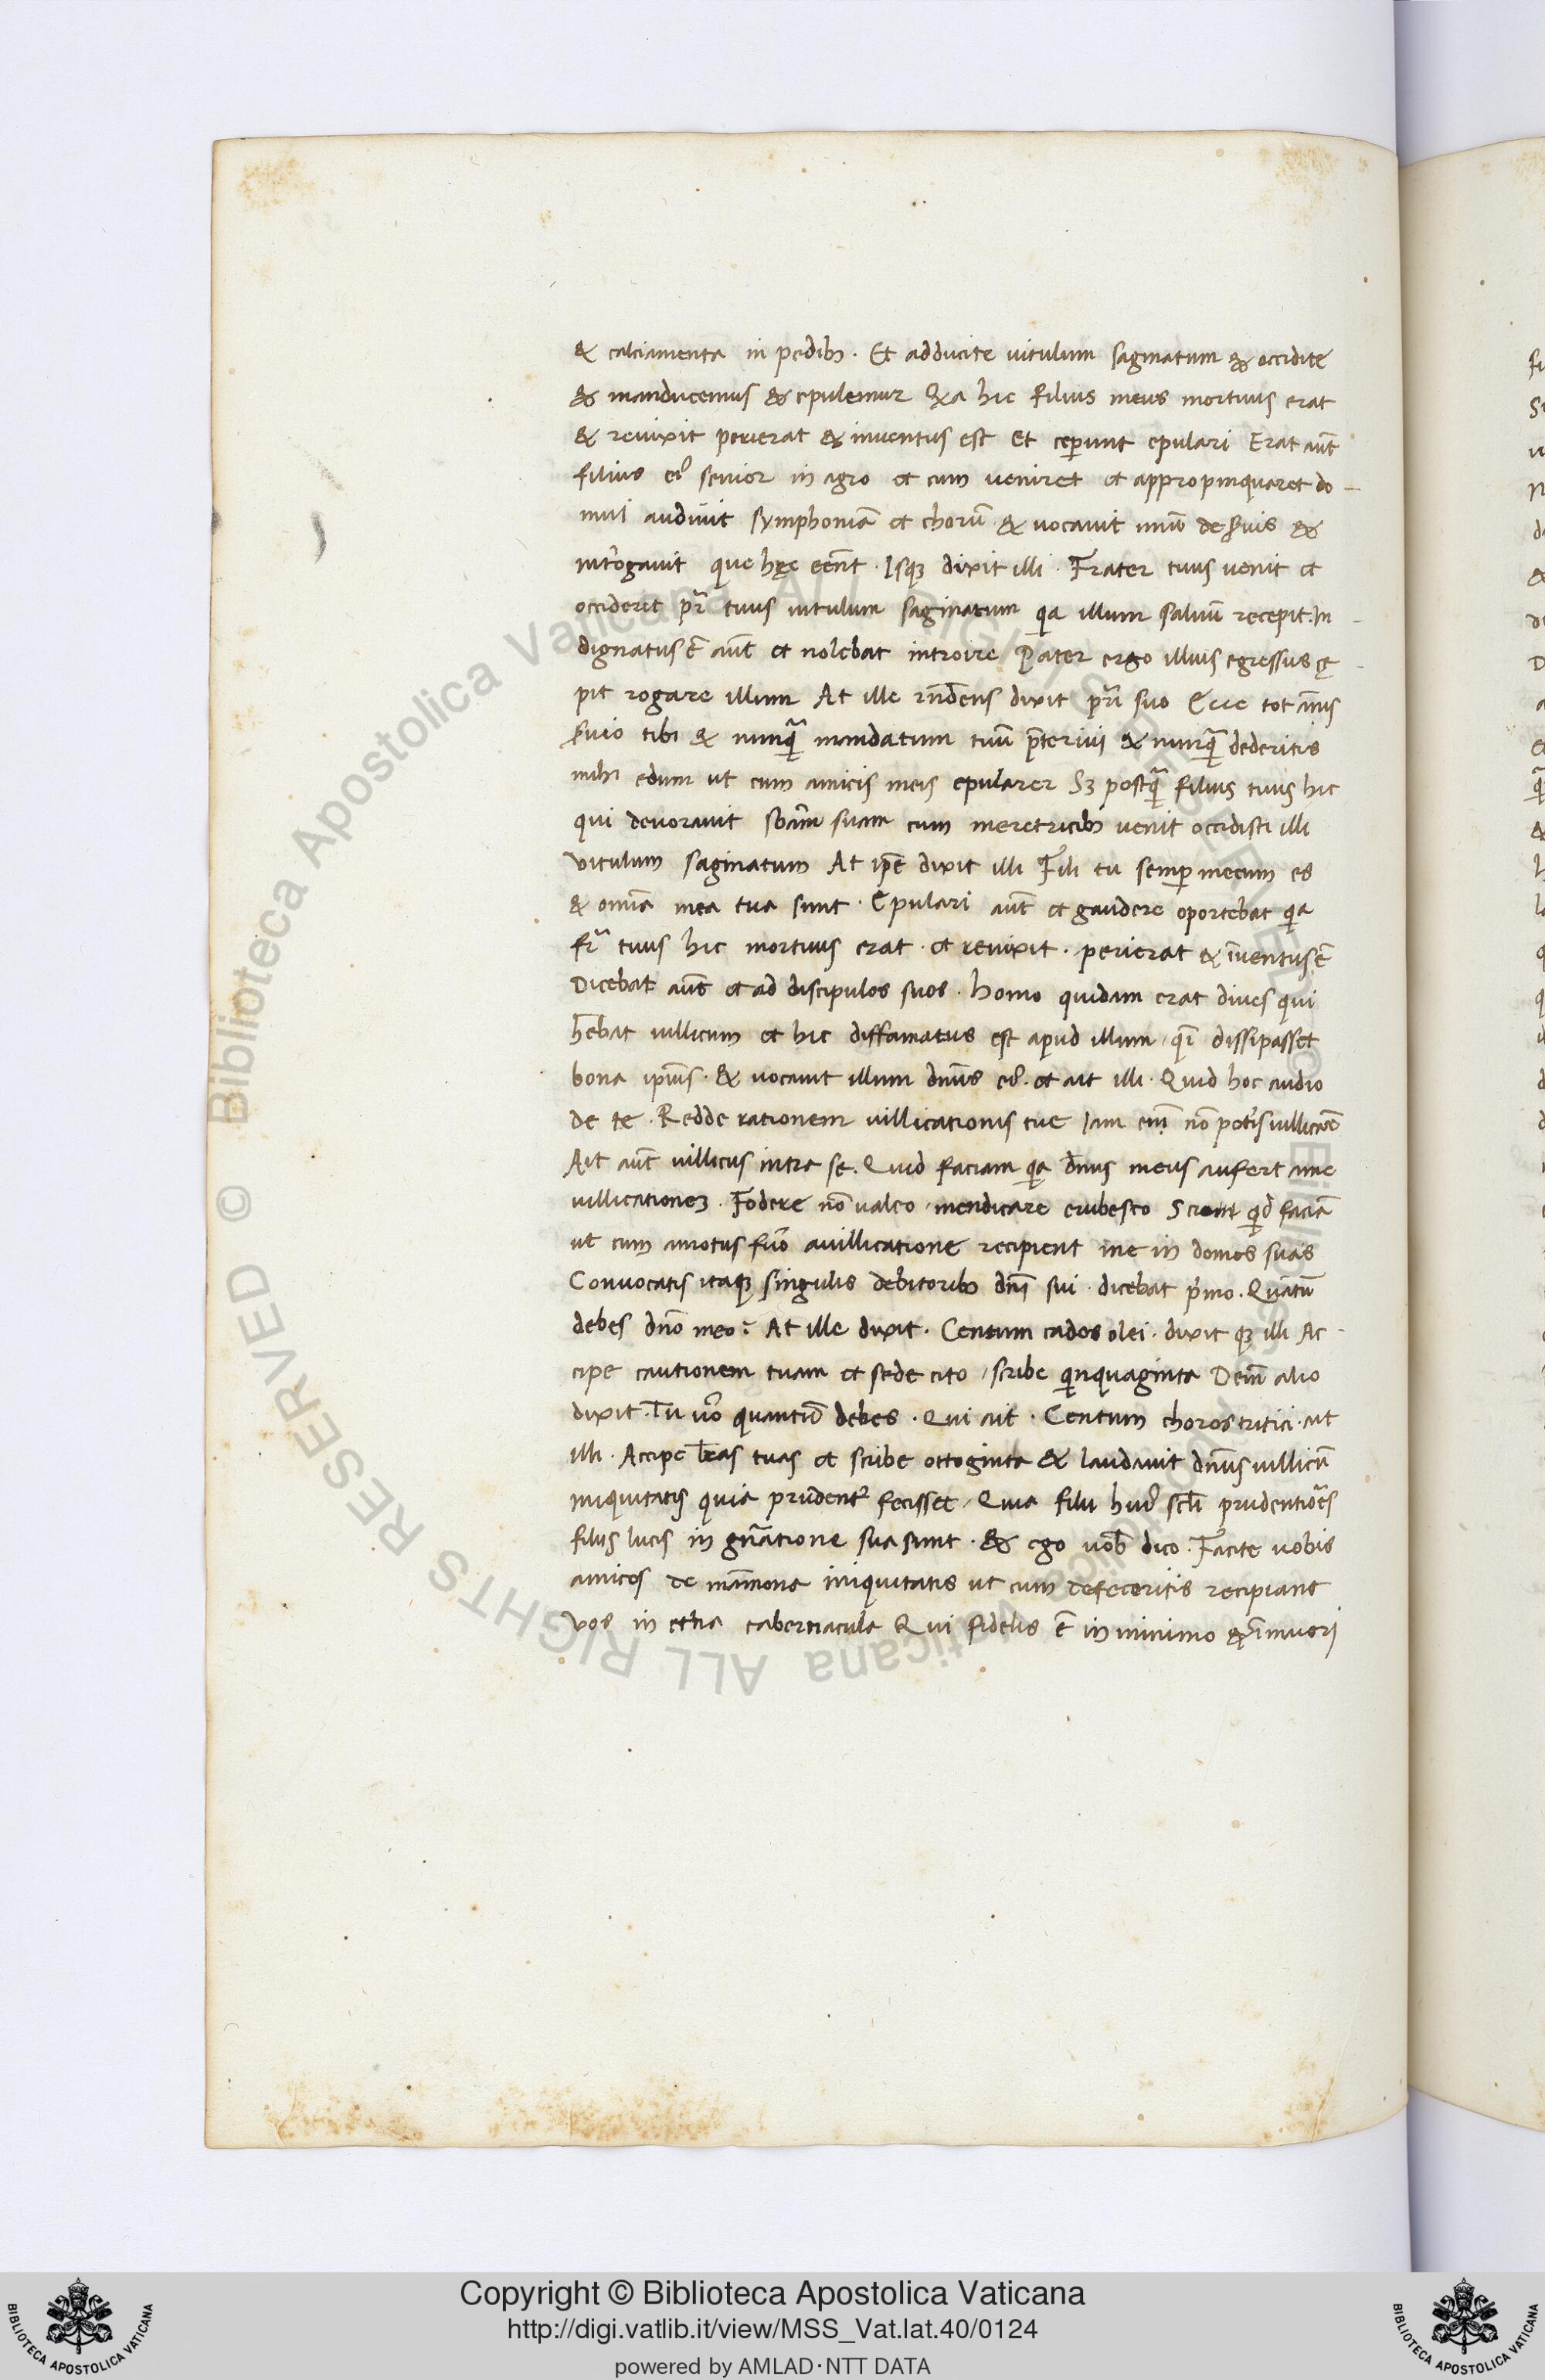 & calciamenta in pedibꝫ. Et adducite uitulum saginatum & occidite
& manducemus & epulemur Qꝛa hic filius meus mortuus erat
& reuixit perierat & inuentus est et ceꝑunt epulari Erat aut̄
filius eiꝰ senior in agro et cum ueniret et appropinquaret do-
mui audiuit symphoniā et chorū & uocauit unū de ẜuis &
int̓rogauit que hęc eēnt. Isqꝫ dixit illi. Frater tuus uenit et
occiderit pr̄ tuus uitulum saginatum qa illum saluū recepit. In-
dignatus ē aut̄ et nolebat introire Pater ergo illius egressus cę-
pit rogare illum At ille rn̄dens dixit pr̄i suo Ecce tot ānis
ẜuio tibi & nunqᷓ mandatum tuū p̄teriui & nunqᷓ dedisti
mihi edum ut cum amicis meis epularer Sꝫ postqᷓ filius tuus hic
qui deuorauit sb̄am suam cum meretricibꝫ uenit occidisti illi
Vitulum saginatum At ip̄e dixit illi Fili tu semꝑ mecum es
& omīa mea tua sunt. Epulari aut̄ et gaudere oportebat qa
fr̄ tuus hic mortuus erat. et reuixit. perierat & īuentus ē
Dicebat aut̄ et ad discipulos suos. homo quidam erat diues qui
h̄ebat uillicum et hic diffamatus est apud illum qͣi dissipasset
bona ipīus. & uocauit illum dn̄us eiꝰ. et ait illi. Quid hoc audio
de te. Redde rationem uillicationis tue Iam em̄ nō pot̓is uillicare
Ait aut̄ uillicus intra se. Quid faciam qa dn̄us meus aufert a me
uillicationeꝫ. Fodere nō ualeo. mendicare erubesco Scio qid faciā
ut cum amotus fuo᷑ a uillicatione recipient me in domos suas
Conuocatis itaqꝫ singulis debitoribꝫ dn̄i sui. dicebat pͥmo. Quātū
debes dn̄o meo? At ille dixit. Centum cados olei. dixit qꝫ illi Ac-
cipe cautionem tuam et sede cito / scribe qinquaginta Dein̄ alio
dixit. Tu uͦo quantū debes. Qui ait. Centum choros tritici. ait
illi. Accipe lr̄as tuas et scribe octoginta & laudauit dn̄us uillicū
iniquitatis quia prudent᷑ fecisset / Quia filii huiꝰ scl̄i prudentiōes
filiis lucis in gn̄atione sua sunt. & ego uob̄ dico. Facite uobis
amicos de māmona iniquitatis ut cum defeceritis recipiant
vos in et̄na tabernacula Qui fidelis ē in minimo & ī maiori